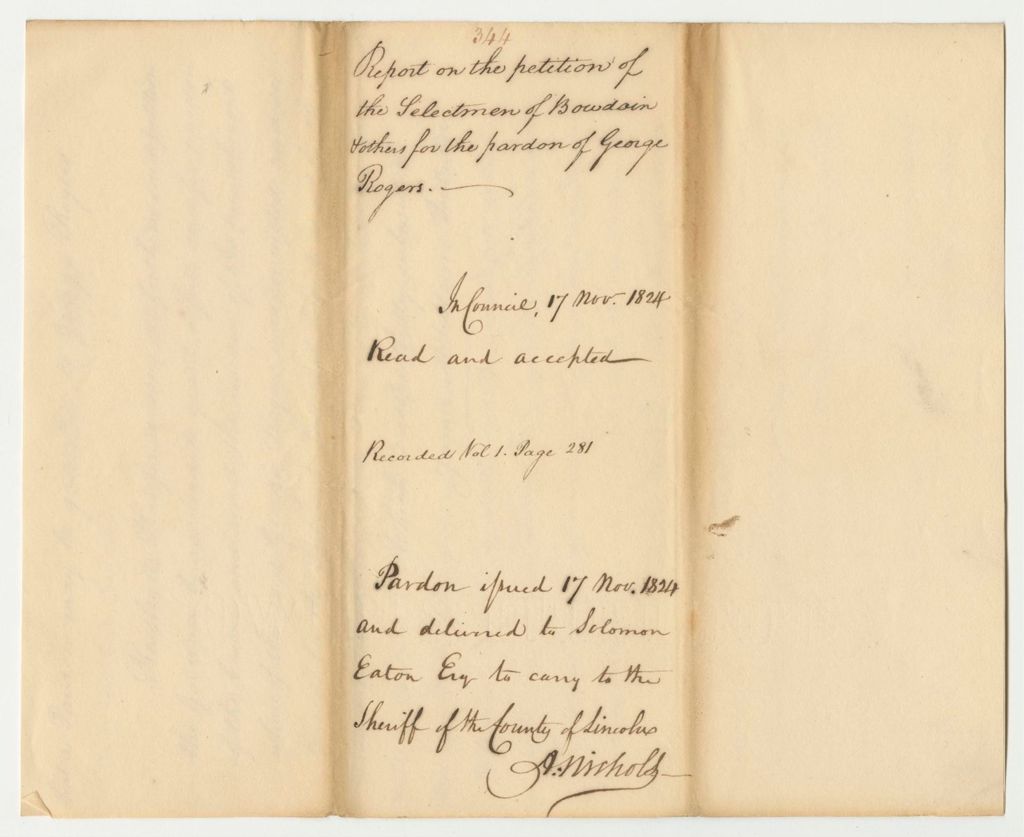 344
Report on the petition of
the Selectmen of Bowdoin
& others for the pardon of George
Rogers.
In Council, 17 Nov. 1824
Read and accepted
Recorded Vol 1. Page 281
Pardon issued 17 Nov. 1824
and delivered to Solomon
Eaton Esq to carry to the
Sheriff of the County of Lincoln
A. Nichols